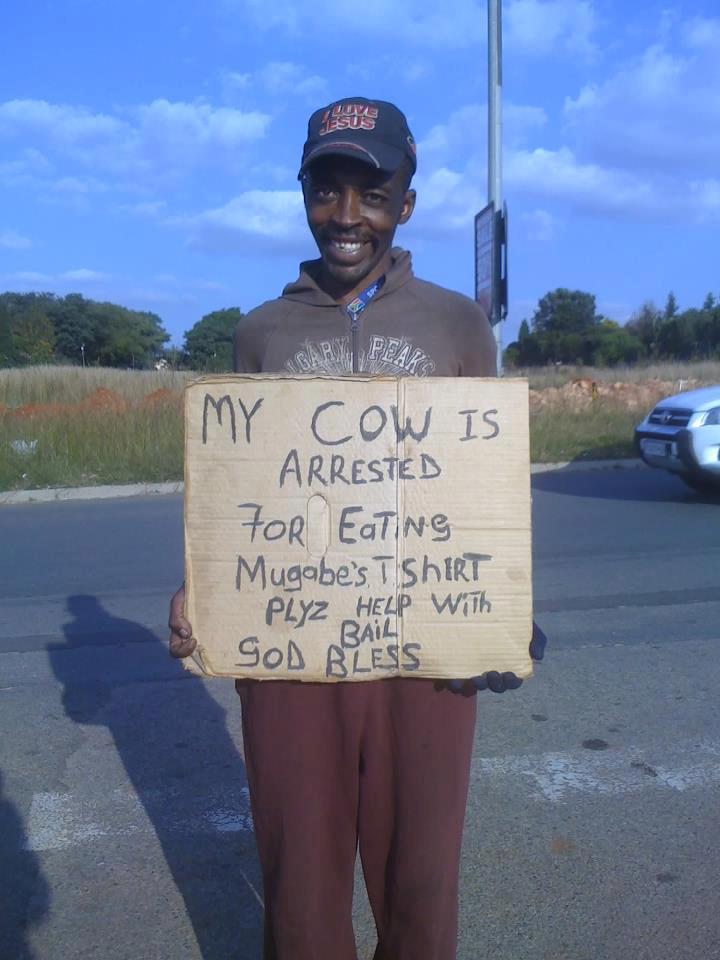 I LOVE
JESUS
GARY PEAKS
MY COW IS
ARRESTED
FOR EaTiNg
Mugabe's T.ShiRT
PLYZ HELP WiTh
BaiL
GOD BLESS